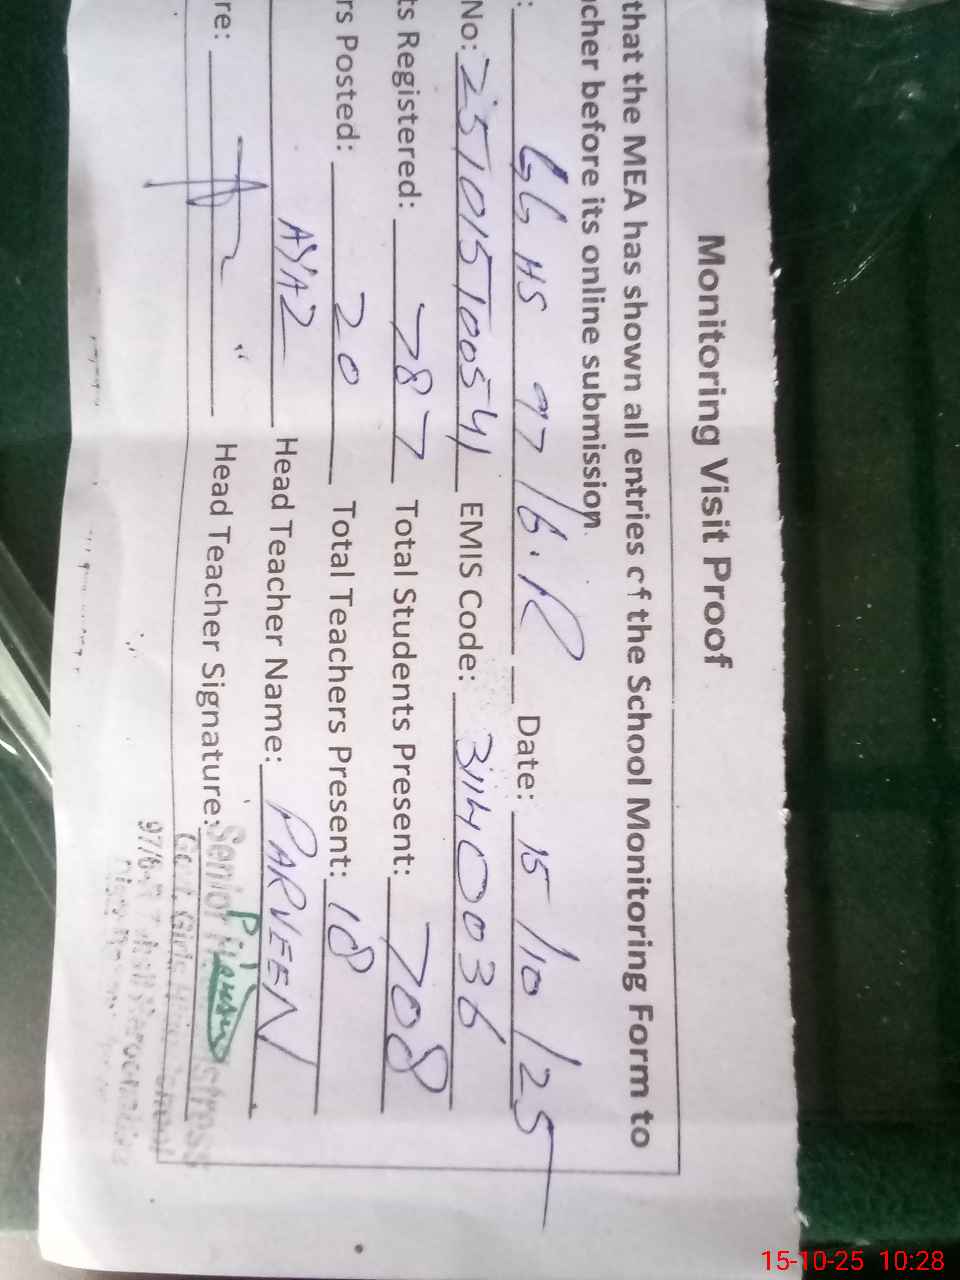 Monitoring Visit Proof
that the MEA has shown all entries of the School Monitoring Form to
cher before its online submission.
: GG HS 97/6.R Date: 15/10/25
No: 251015100541 EMIS Code: 31140036
ts Registered: 787 Total Students Present: 708
rs Posted: 20 Total Teachers Present: 18
AYAZ Head Teacher Name: PARVEEN
re: Head Teacher Signature:
Senior
Govt. Girls
97/6-R
15-10-25 10:28